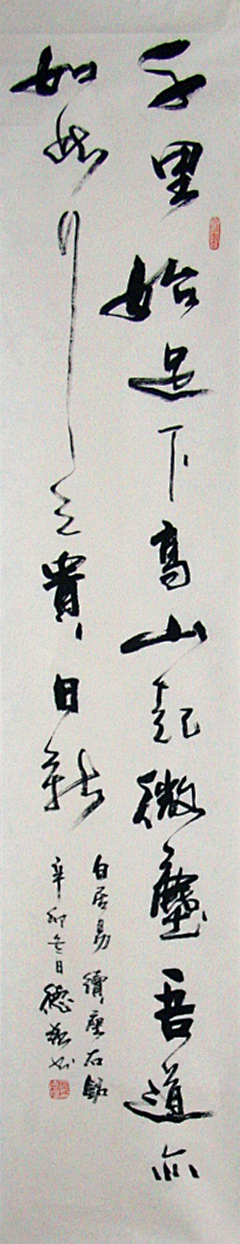 千里始足下高山起微塵吾道亦
如此行之貴日新
白居易續座石銘
辛卯冬日德